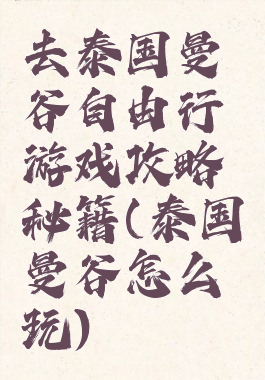 去泰国曼
谷自由行
游戏攻略
秘籍(泰国
曼谷怎么
玩)